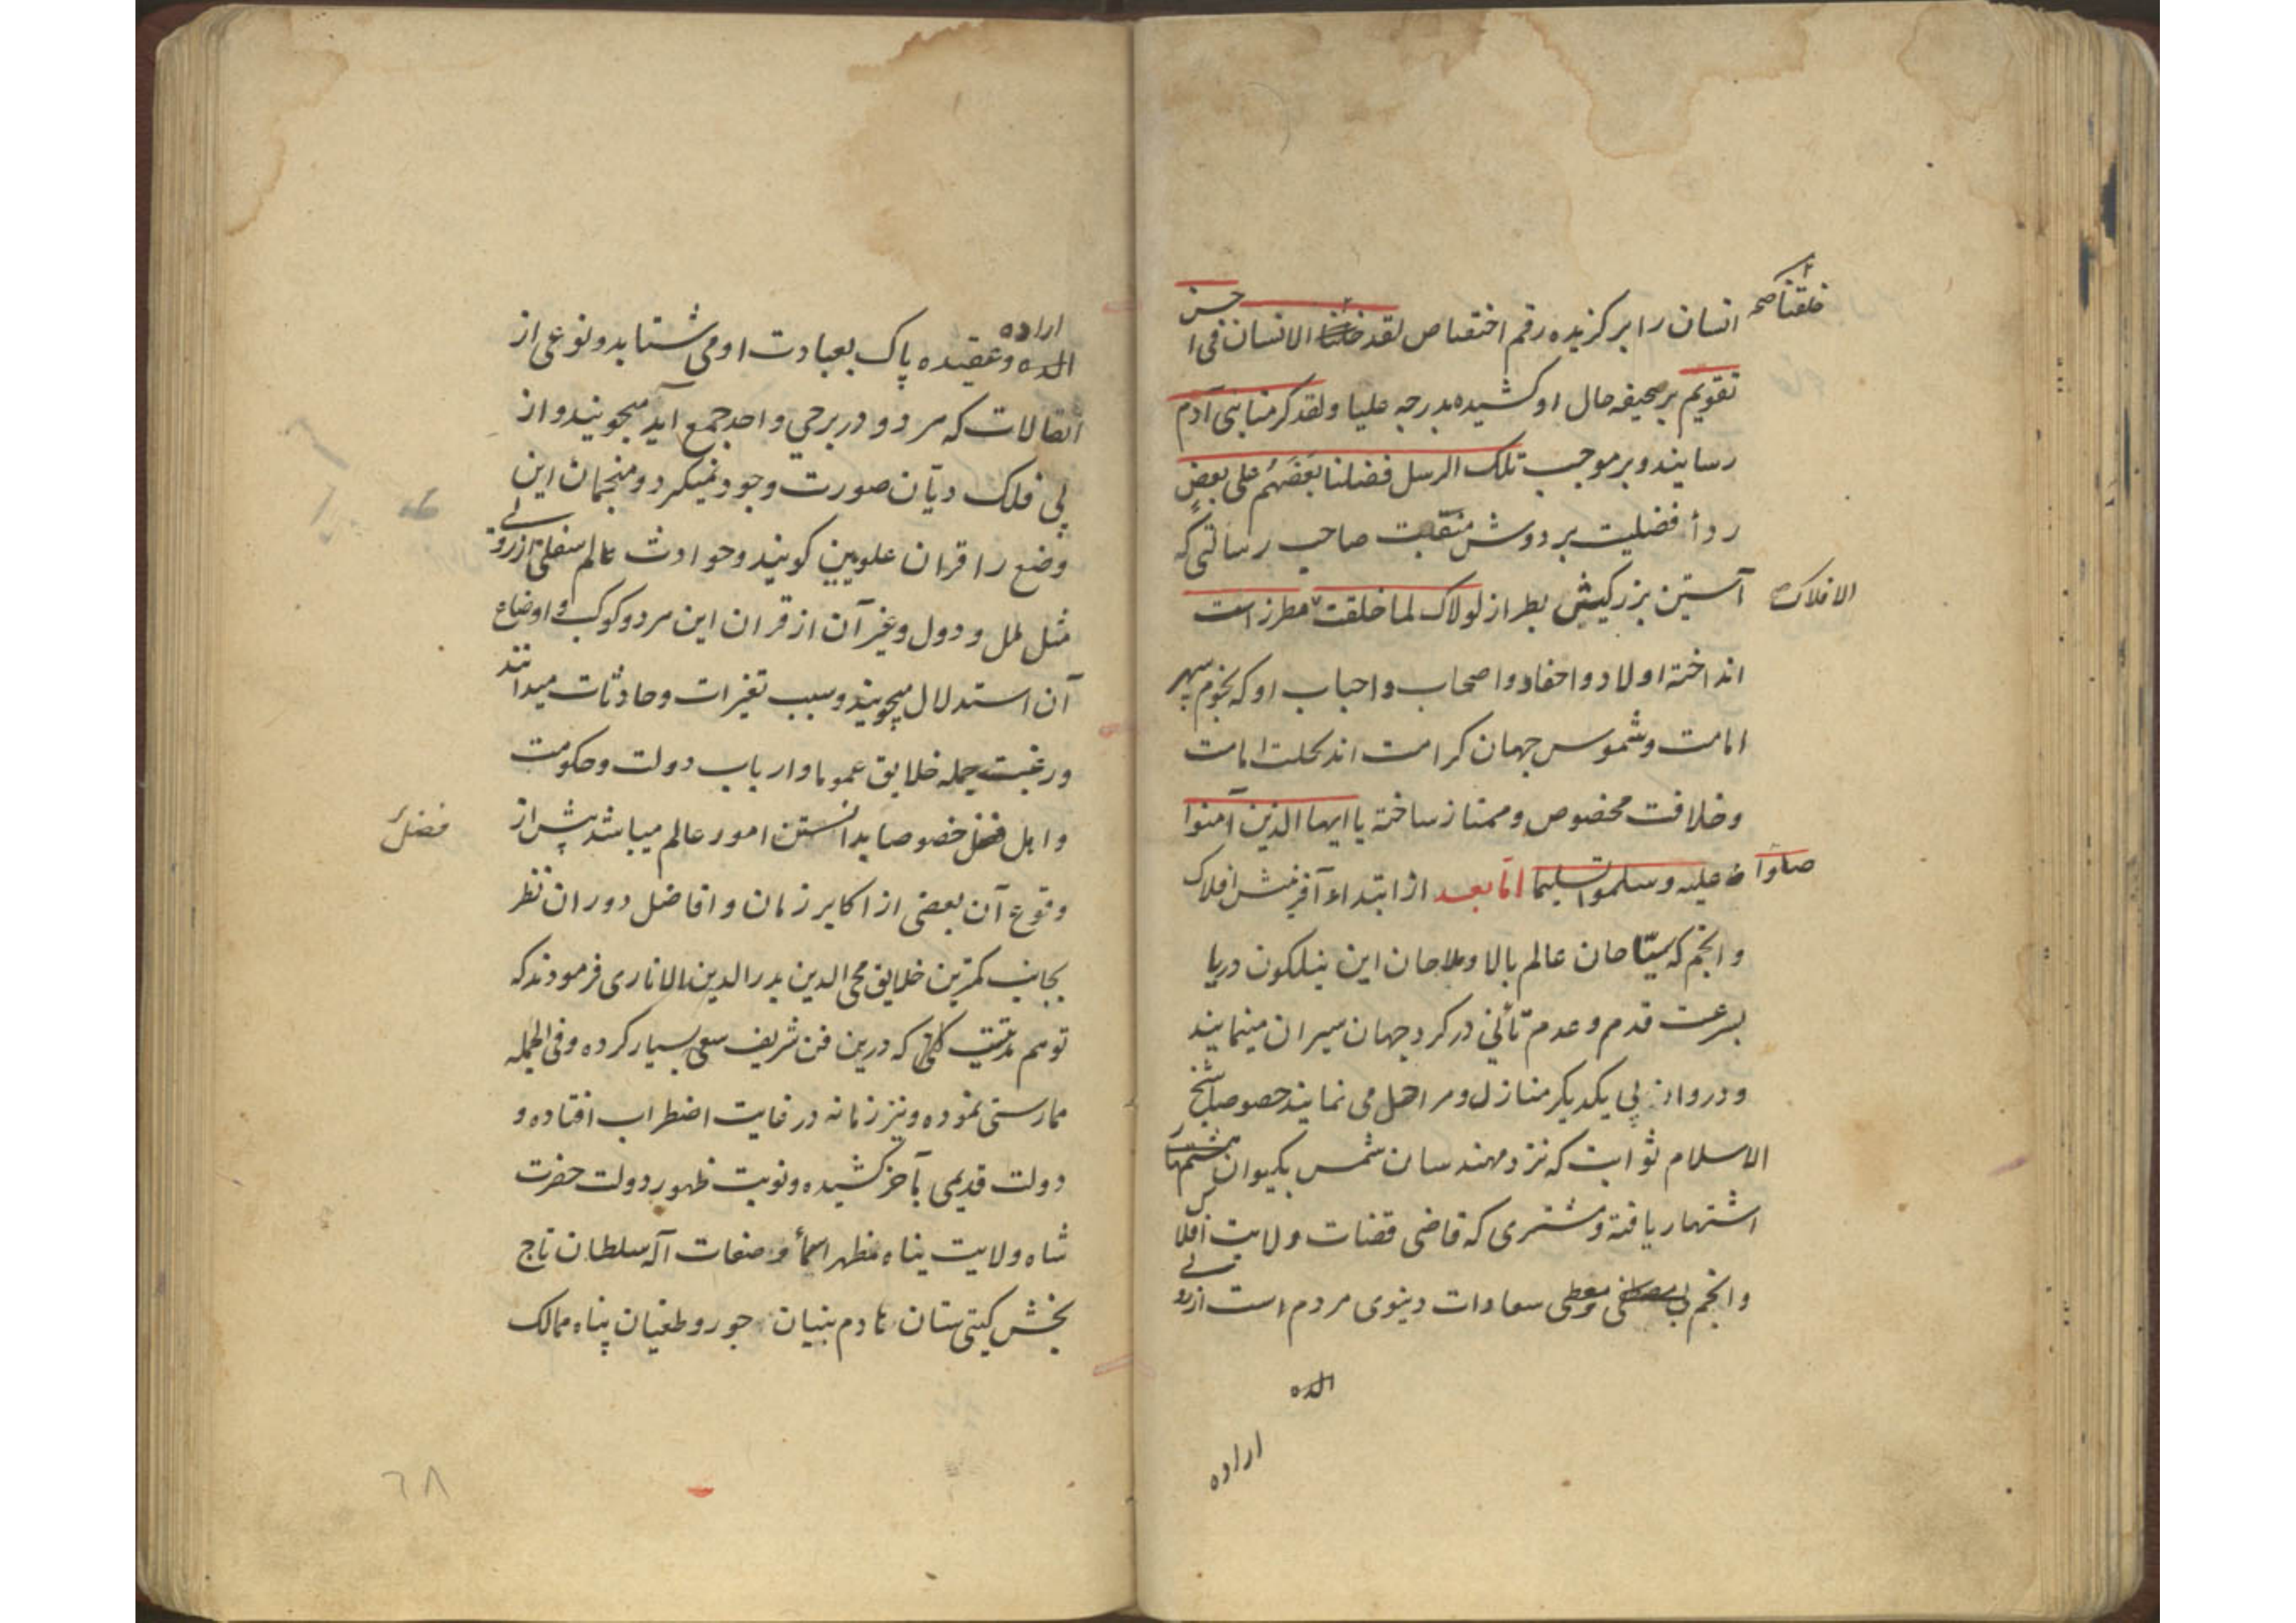 خلقنا صح
انسان را برگزیده رقم اختصاص لقد خلقنا الانسان فی احسن
تقویم بر صحیفه حال او کشیده بدرجه علیا ولقد کرمنا بنی آدم
رسانیده و بر موجب تلک الرسل فضلنا بَعضَهُم علی بعضٍ
ردأ فضلیت بر دوش منقبت صاحب رسالتی که
الافلاک
آستین بزرکیش بطراز لولاک لما خلقت مطرز است
انداخته اولاد و احفاد و اصحاب و احباب او که نجوم سپهر
امامت و شموس جهان کرامت اند بحلت امامت
و خلافت مخصوص و ممتاز ساخته یا ایها الذین آمنوا
صلوا علیه و سلموا تسلیما اما بعد از ابتداء آفرینش افلاک
و انجم که سیّاحان عالم بالا و ملاحان این نیلکون دریا
بسرعت قدم و عدم تأنی در کرد جهان سیران مینمایند
و در وادی پی یکدیکر منازل و مراحل می نمایند خصوصا شیخ
الاسلام ثوابت که نزد مهندسان شمس بکیوان هشتم
اشتهار یافته و مشتری که قاضی قضات ولایت افلاک
و انجم معطی سعادات دنیوی مردم است از روی
الده
اراده
اراده
الده و عقیده پاک بعبادت او می شتابد و نوعی از
اتصالات که هر دو در برجی واحد جمع آید میجویند و از
پی فلک دیّان صورت وجود نمیکرد و منجمان این
وضع را قران علویین کویند و حوادث عالم سفلی از روی
مثل ملل و دول و غیر آن از قران این هر دو کوکب و اوضاع
آن استدلال میجویند و سبب تغیرات و حادثات میدانند
و رغبت جمله خلایق عموما و ارباب دولت و حکومت
فضل
و اهل فضل خصوصا بدانستن امور عالم میباشد پیش از
وقوع آن بعضی از اکابر زمان و افاضل دوران نظر
بجانب کمترین خلایق محی الدین بدرالدین الاناری فرمودند که
تو هم مدتیت که درین فن شریف سعی بسیار کرده و فی الجمله
ممارستی نموده و نیز زمانه در غایت اضطراب افتاده و
دولت قدیمی بآخر کشیده و نوبت ظهور دولت حضرت
شاه ولایت پناه مظهر اسمأ و صفات آله سلطان تاج
بخش کیتی ستان هادم بنیان جور و طغیان پناه ممالک
٦٨